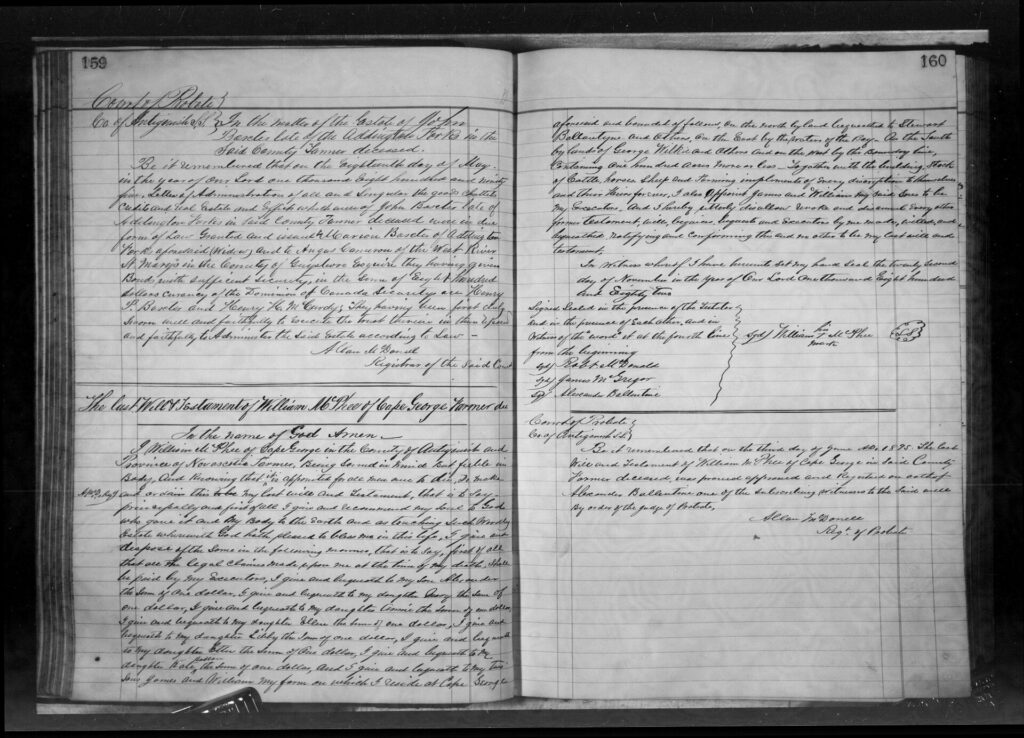 159
Court of Probate
Co. of Antigonish SS. In the matter of the Estate of John
Baxter late of the Addington Forks in the
Said County Farmer deceased.
Be it remembered that on the Eighteenth day of May
in the year of our Lord one thousand Eight hundred and ninety
five Letters of Administration of all and Singular the goods chattels
Credits and Real Estate and Effects of John Baxter late of
Addington Forks in Said County Farmer deceased were in due
form of Law Granted and issued to Marion Baxter of Addington
Forks aforesaid (Widow) and to Angus Cameron of the West River
St Marys in the County of Guysboro Esquire they having given
Bond with Sufficient Security in the Sum of Eight Hundred
dollars currency of the Dominion of Canada Security are Henry
P. Baxter and Henry H. McCurdy; They having been first duly
Sworn well and faithfully to Execute the trust therein in them reposed
and faithfully to Administer the Said Estate according to Law
Allan McDonell
Registrar of the Said Court
The Last Will & Testament of William McPhee of Cape George Farmer de
In the name of God Amen
I William McPhee of Cape George in the County of Antigonish and
Province of Novascotia Farmer, Being Sound in mind but feeble in
Body, And Knowing that it is appointed for all men once to die, Do make
and ordain this to be my last will and Testament, that is to Say
principally and first of all I give and recommend my Soul to God
who gave it and my Body to the Earth and as touching Such Worldly
Estate wherewith God hath pleased to bless me in this life, I give and
dispose of the Same in the following manner, that is to Say, first of all
that all the legal claims made upon me at the time of my death Shall
be paid by my Executors, I give and bequeath to my Son Alexander
the Sum of one dollar, I give and bequeath to my daughter the Sum of
one dollar, I give and bequeath to my daughter Annie the Sum of one dollar,
I give and bequeath to my daughter Ellen the Sum of one dollar, I give and
bequeath to my daughter Libby the Sum of one dollar, I give and bequeath
to my daughter the Sum of One dollar, I give and bequeath to my
daughter the Sum of one dollar and I give and bequeath to my two
Sons James and William my farm on which I reside at Cape George
160
aforesaid and bounded as follows on the north by land bequeathed to Stewart
Ballentyne and Others On the East by the waters of the Bay. On the South
by lands of George Willkie and Others and on the west by the boundary line,
Containing one hundred acres more or less Together with the building Stock
of Cattle, horses Sheep and Farming implements of every discription to themselves
and their Heirs forever, I also Appoint James and William my Said Sons to be
my Executors, And I hereby utterly disallow revoke and disannul Every other
former testament, will, legacies, bequests and Executors by me made, willed, and
bequeathed Ratifying and Confirming this and no other to be my last will and
testament.
In witness whereof I have hereunto set my hand Seal the twenty Second
day of November in the Year of Our Lord One thousand Eight hundred
And Eighty two
Signed Sealed in the presence of the Testator
and in the presence of Each other, and in
Witness of the word it at the fourth line
from the beginning
Sgd William his McPhee
mark
LS
Sgd Robt McDonald
Sgd James McGregor
Sgd Alexander Ballentine
Court of Probate
Co. of Antigonish SS.
Be it remembered that on the third day of June AD. 1895 The Last
Will and Testament of William McPhee of Cape George in Said County
Farmer deceased, was proved approved and Registered on oath of
Alexander Ballentine one of the Subscribing Witnesses to the Said will
By order of the Judge of Probate.
Allan McDonell
Regr. of Probate